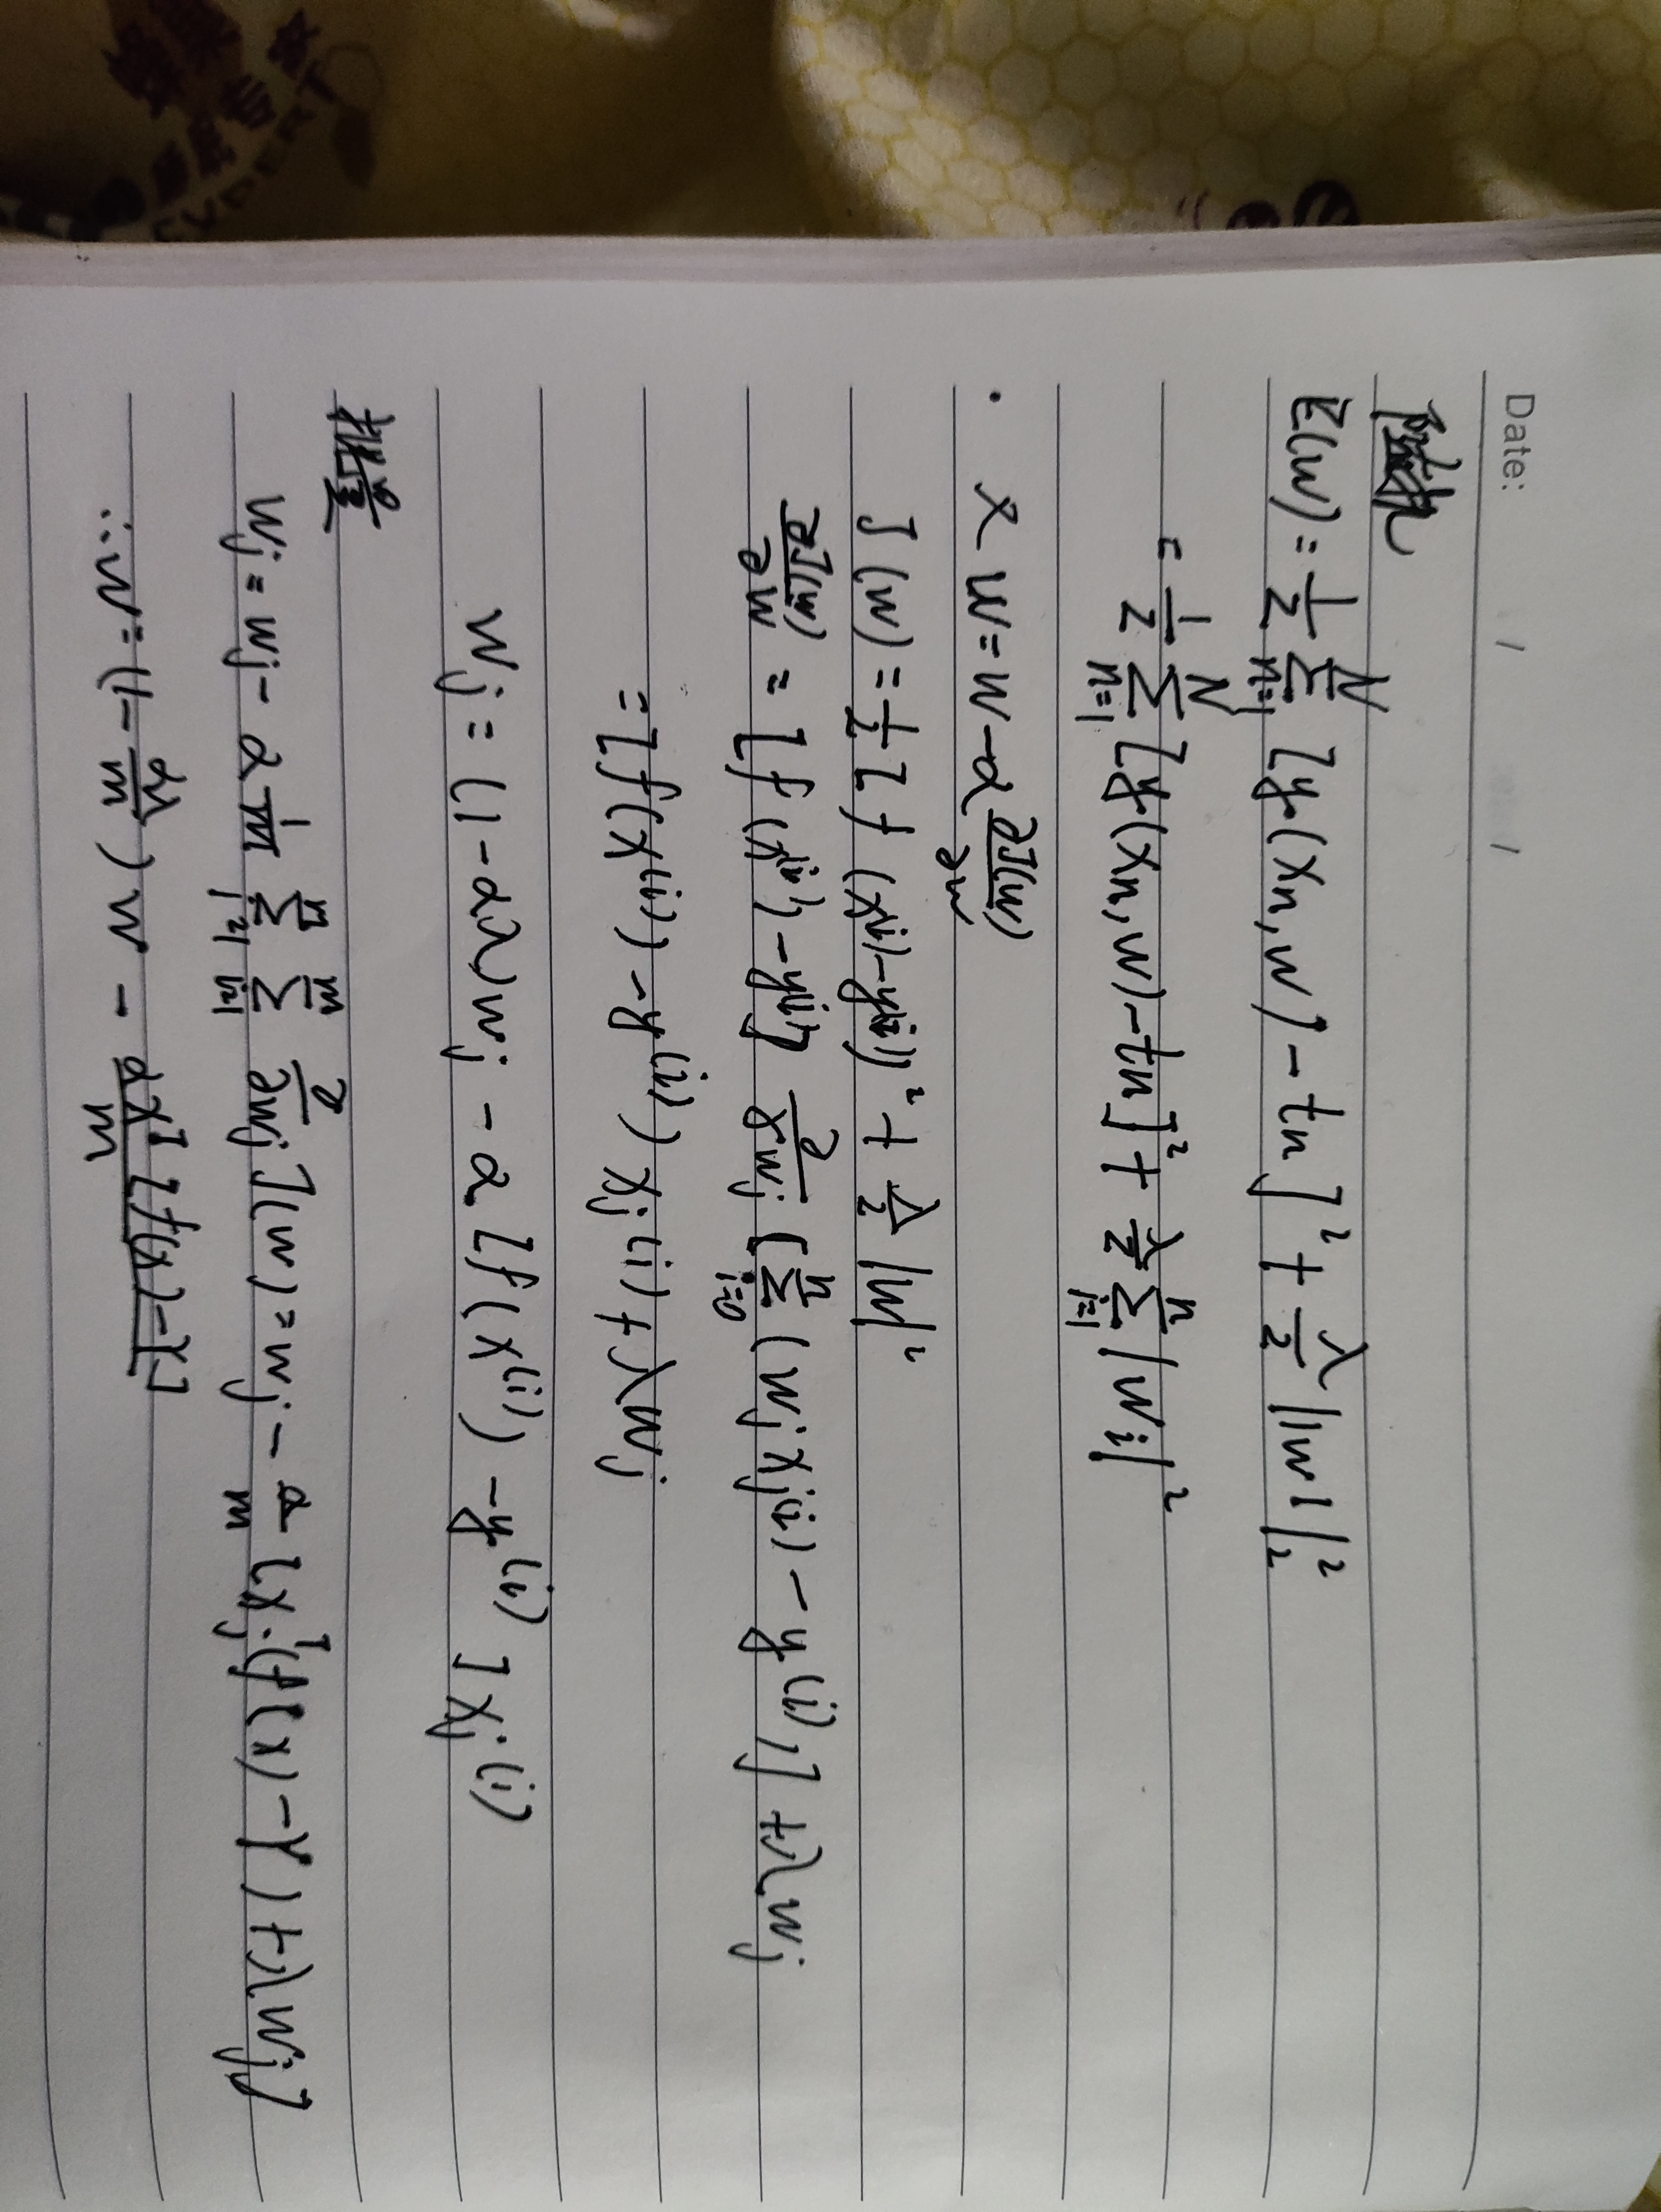 Date: / /
随机
E(w) = 1/2 Σ_{n=1}^{N} [y(xn, w) - tn]² + λ/2 ||w||₂²
= 1/2 Σ_{n=1}^{N} [y(xn, w) - tn]² + λ/2 Σ_{i=1}^{n} |wi|²
· x w = w - α ∂J(w)/∂w
J(w) = 1/2 [f(x^(i)) - y^(i)]² + λ/2 |w|²
∂J(w)/∂w = [f(x^(i)) - y^(i)] ∂/∂wj [Σ_{i=0}^{n} (wj xj^(i) - y^(i))] + λwj
= [f(x^(i)) - y^(i)) xj^(i) + λwj
wj = (1 - αλ)wj - α [f(x^(i)) - y^(i)] xj^(i)
批量
wj = wj - α 1/m Σ_{j=1}^{n} Σ_{i=1}^{m} ∂/∂wj J(w) = wj - α/m [xj^T · (f(x) - Y) + λwj]
∴ w = (1 - αλ/m) w - αX^T [f(x) - Y]/m
专家
EXPERT